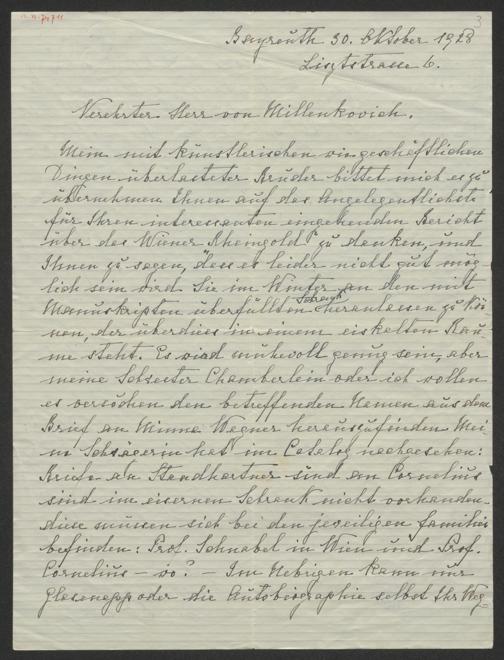 3
Bayreuth 30. Oktober 1928
Lisztstrasse 6.
Verehrter Herr von Millenkovich.
Mein mit künstlerischen wie geschäftlichen
Dingen überlasteter Bruder bittet mich es zu
übernehmen Ihnen auf das Angelegentlichste
für Ihren interessanten eingehenden Bericht
über das Wiener „Rheingold" zu danken, und
Ihnen zu sagen, dass es leider nicht gut mög
lich sein wird Sie im Winter an den mit
Manuskripten überfüllten Schrank heranlassen zu kön
nen, der überdies in einem eiskalten Rau
me steht. Es wird mühevoll genug sein, aber
meine Schwester Chamberlain oder ich wollen
es versuchen den betreffenden Namen aus dem
Brief an Minna Wagner herauszufinden. Mei
ne Schwägerin hat im Catalog nachgesehen:
Briefe an Standhartner sind an Cornelius
sind im eisernen Schrank nicht vorhanden
diese müssen sich bei den jeweiligen Familien
befinden: Prof. Schnabel in Wien und Prof.
Cornelius – wo? – Im Uebrigen kann nur
Glasenapp oder die Autobiographie selbst Ihr Weg=